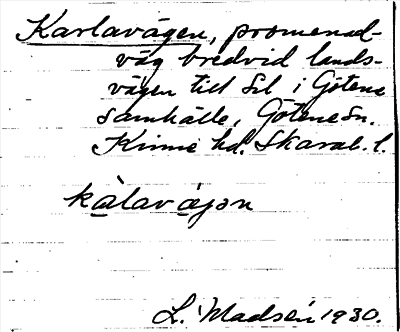 Karlavägen, promenad-
väg bredvid lands-
vägen till Sil i Götene
samhälle, Götene sn.
Kinne hd. Skarab. l.
kalavägen
L. Madsén 1930.